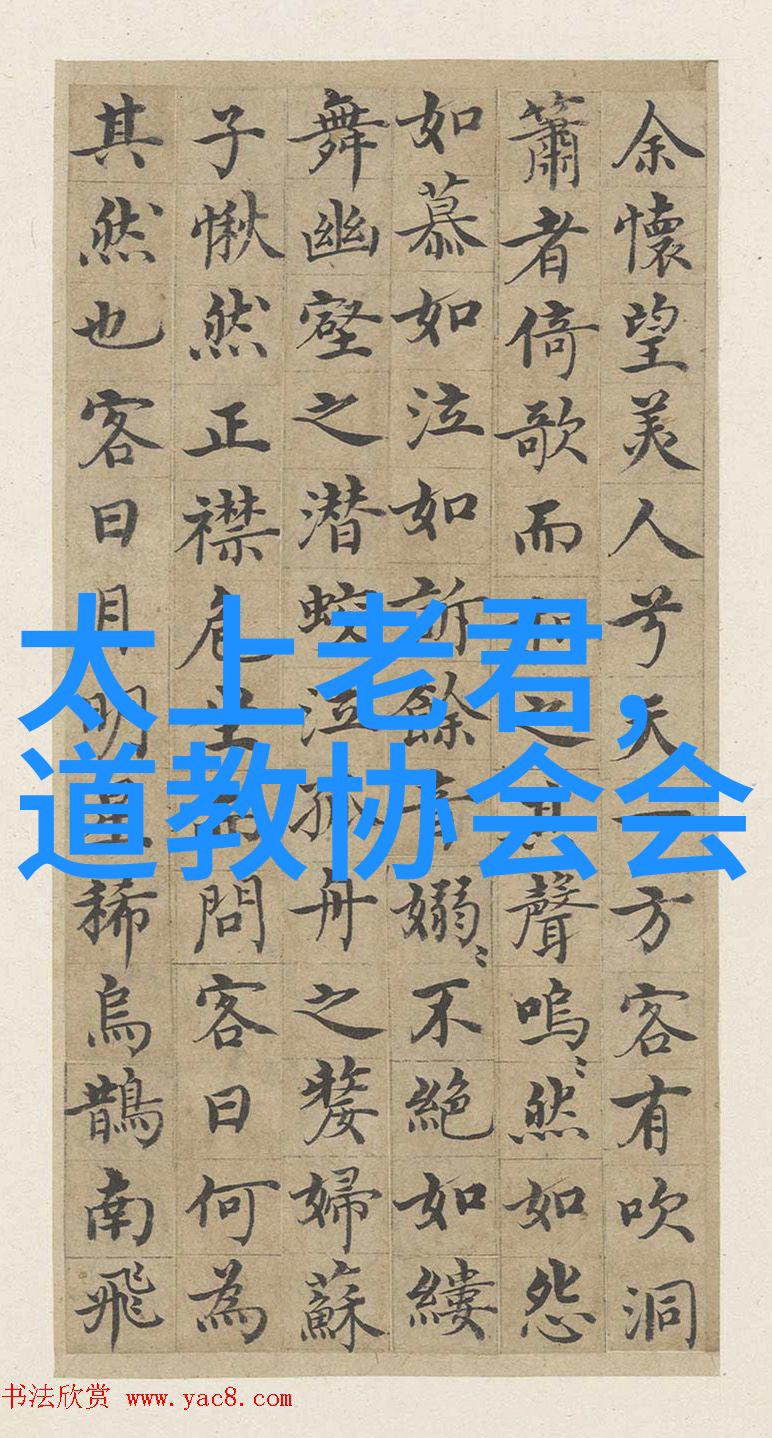 余懷望美人兮天一方客有吹洞
簫者倚歌而和之其聲嗚〻然如怨
如慕如泣如訴餘音嫋〻不絕如縷
舞幽壑之潜蛟泣孤舟之嫠婦蘇
子愀然正襟危坐而問客曰何為
其然也客曰月明星稀烏鵲南飛
太上老君,
道教协会会
书法欣赏 www.yac8.com